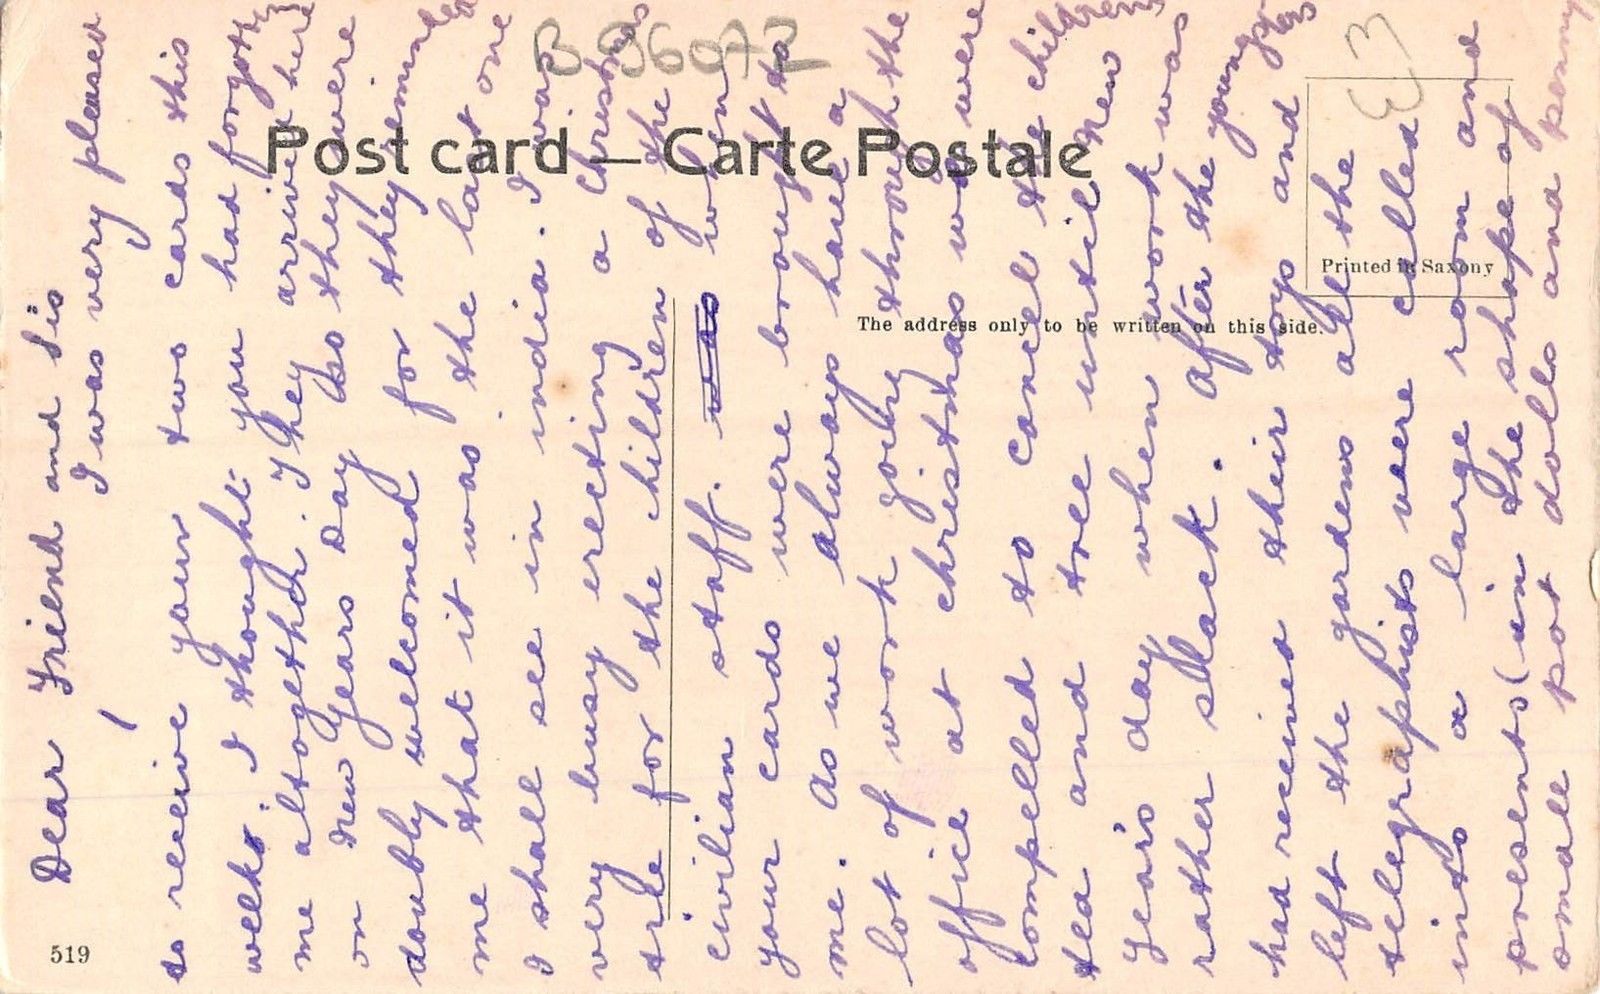 B 96072
E3
Post card — Carte Postale
Printed in Saxony
The address only to be written on this side.
519
Dear Friend and Sis
I was very pleased
to receive your two cards this
week. I thought you had forgotten
me altogether. They arrived here
on New Years Day so they were
doubly welcomed for they reminded
me that it was the last one
I shall see in india. I was
very busy erecting a christmas
tree for the children of the
civilian staff. was when
your cards were brought to
me. As we always have a
lot of work going through the
office at christmas we were
compelled to cancel the childrens
tea and tree until New
Year's day when work was
rather slack. After the youngsters
had received their toys and
left the gardens all the
telegraphists were called
into a large room and
presents (in the shape of
small pot dolls and penny